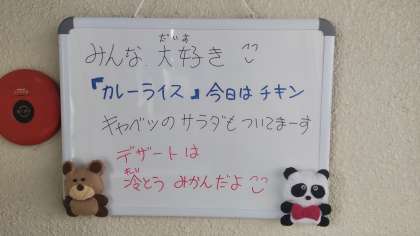 みんな 大好き
『カレーライス』今日は チキン
キャベツの サラダも ついてまーす
デザートは
冷とう みかんだよ